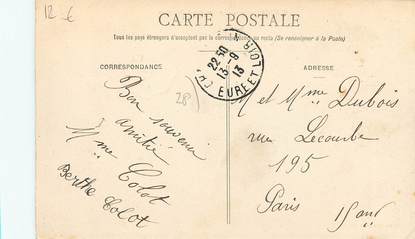 12 €
CARTE POSTALE
Tous les pays étrangers n'acceptent pas la correspondance au recto (Se renseigner à la Poste)
CORRESPONDANCE
ADRESSE
22 50
13 - 9
13
EURE ET LOIR
28
Bon souvenir
amitié
Mme Colot
Berthe Colot
M et Mme Dubois
rue Lecourbe
195
Paris